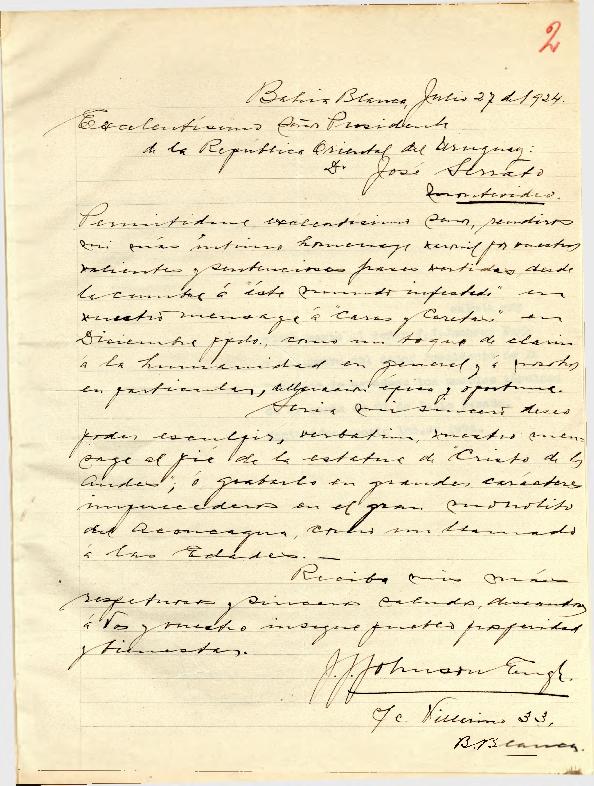 2
Bahia Blanca, Julio 27 de 1924.
Excelentísimo señor Presidente
de la República Oriental del Uruguay:
Dr. José Serrato
Montevideo.
Permitidme excelentísimo señor, rendiros
mi más íntimo homenage por vuestras
valientes y sentenciosas frases vertidas desde
la cumbre á "éste mundo infestado" en
vuestro mensage á "Caras y Caretas" en
Diciembre ppdo., como un toque de clarin
á la humanidad en general y á nosotros
en particular, épica y oportuna.
Seria mi sincero deseo
poder esculpir, verbatim, vuestro men-
sage al pié de la estatua d "Cristo de los
Andes"; ó grabarlo en grandes carácteres
imperecederos en el gran monolito
del Aconcagua, como un llamado
á las Edades. —
Reciba mis más
respetuosos y sinceros saludos, deseandoos
á Vos y vuestro insigne pueblo prosperidad
y bienestar.
J. J. Johnson Engl.
c/c Villarino 33,
B. Blanca.